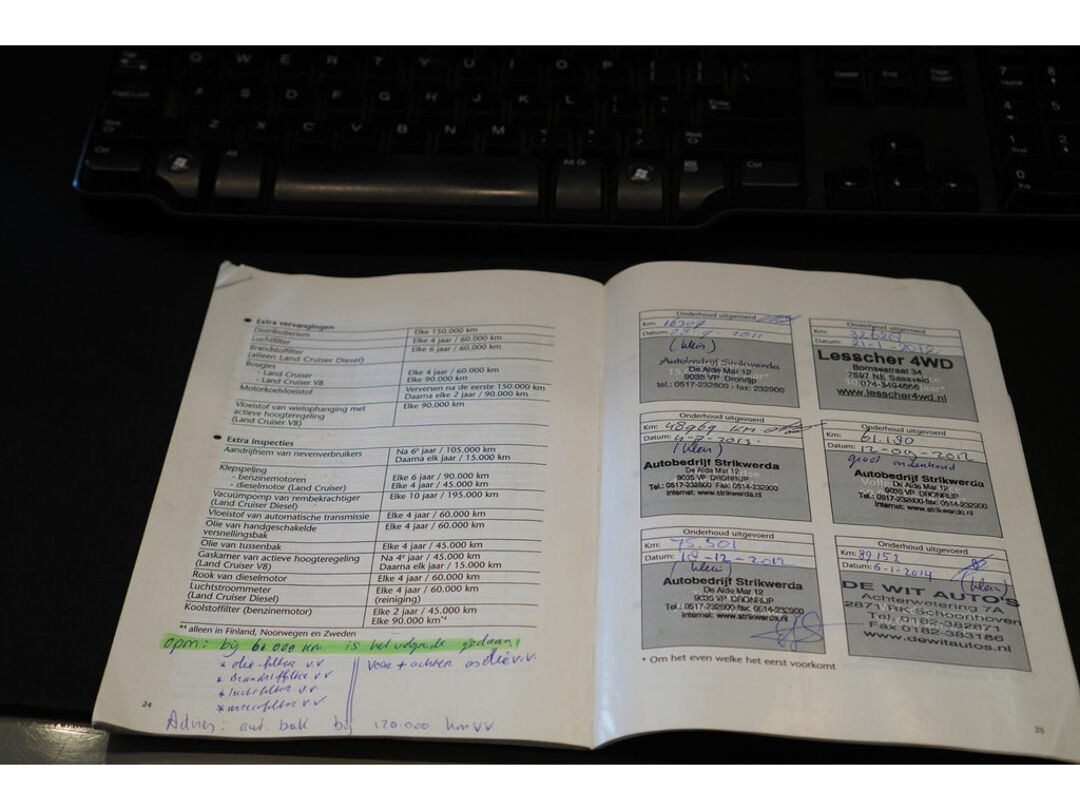 Q W E R T Y U I O P
A S D F G H J K L
Z X C V B N M
Ctrl Alt Alt Gr Ctrl
• Extra vervangingen
Distributieriem Elke 150.000 km
Luchtfilter Elke 4 jaar / 60.000 km
Brandstoffilter Elke 6 jaar / 60.000 km
(alleen Land Cruiser Diesel)
Bougies
- Land Cruiser Elke 4 jaar / 60.000 km
- Land Cruiser V8 Elke 90.000 km
Motorkoelvloeistof Verversen na de eerste 150.000 km
Daarna elke 2 jaar / 90.000 km
Vloeistof van wielophanging met Elke 90.000 km
actieve hoogteregeling
(Land Cruiser V8)
• Extra Inspecties
Aandrijfriem van nevenverbruikers Na 6e jaar / 105.000 km
Daarna elk jaar / 15.000 km
Klepspeling
- benzinemotoren Elke 6 jaar / 90.000 km
- dieselmotor (Land Cruiser) Elke 4 jaar / 45.000 km
Vacuümpomp van rembekrachtiger Elke 10 jaar / 195.000 km
(Land Cruiser Diesel)
Vloeistof van automatische transmissie Elke 4 jaar / 60.000 km
Olie van handgeschakelde Elke 4 jaar / 60.000 km
versnellingsbak
Olie van tussenbak Elke 4 jaar / 45.000 km
Gaskamer van actieve hoogteregeling Na 4e jaar / 45.000 km
(Land Cruiser V8) Daarna elk jaar / 15.000 km
Rook van dieselmotor Elke 4 jaar / 60.000 km
Luchtstroommeter Elke 4 jaar / 60.000 km
(Land Cruiser Diesel) (reiniging)
Koolstoffilter (benzinemotor) Elke 2 jaar / 45.000 km
Elke 90.000 km*4
*4 alleen in Finland, Noorwegen en Zweden
opm: bij 60.000 km is het volgende gedaan:
* olie-filter v.v
* Brandstffilter v.v
* luchtfilter v.v
* interfilter v.v.
Voor + achter as olie v.v.
Advies: aut. bak bij 120.000 km vv
24
Onderhoud uitgevoerd
Km:
Datum: 2012
(klein)
Autobedrijf Strikwerda
De Alde Mar 12
9035 VP Dronrijp
tel.: 0517-232800 - fax: 232900
Onderhoud uitgevoerd
Km:
Datum: 21-1-2012
Lesscher 4WD
Bornsestraat 34
7597 NE Saasveld
074-3494666
www.lesscher4wd.nl
Onderhoud uitgevoerd
Km: 48969 km
Datum: 4-7-2013
(klein)
Autobedrijf Strikwerda
De Alde Mar 12
9035 VP DRONRIJP
Tel.: 0517-232800 Fax: 0514-232900
Internet: www.strikwerda.nl
Onderhoud uitgevoerd
Km: 61.190
Datum: 12-09-2012
groot onderhoud
Autobedrijf Strikwerda
De Alde Mar 12
9035 VP DRONRIJP
Tel.: 0517-232800 fax: 0514-232900
Internet: www.strikwerda.nl
Onderhoud uitgevoerd
Km: 75.501
Datum: 18-12-2012
(klein)
Autobedrijf Strikwerda
De Alde Mar 12
9035 VP DRONRIJP
Tel.: 0517-232800 fax: 0514-232900
Internet: www.strikwerda.nl
Onderhoud uitgevoerd
Km: 89.152
Datum: 6-1-2014
(klein)
DE WIT AUTO'S
Achterwetering 7A
2871 RK Schoonhoven
Tel. 0182-382871
Fax 0182-383186
www.dewitautos.nl
* Om het even welke het eerst voorkomt
25